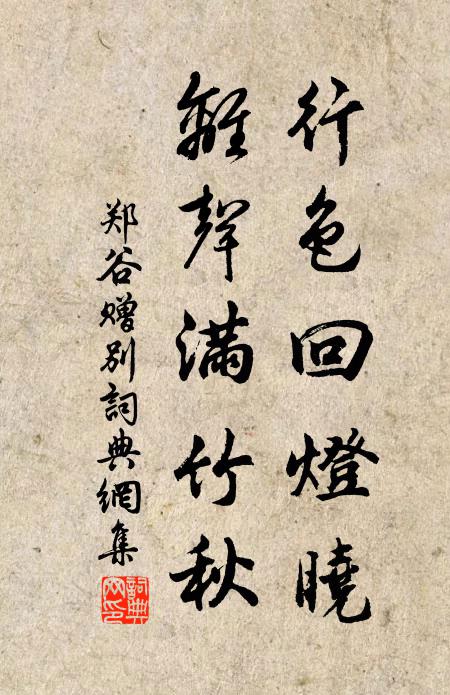 行色回燈曉
離聲滿竹秋
郑谷赠别詞典網集
詞典网印